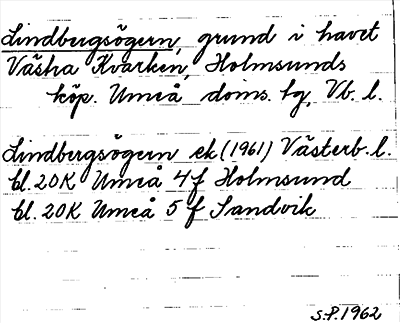 Lindbergsögern, grund i havet
Västra Kvarken, Holmsunds
köp. Umeå doms. hg, Vb. l.
Lindbergsögern ek (1961) Västerb. l.
bl. 20K Umeå 4f Holmsund
bl. 20K Umeå 5f Sandvik
S.P. 1962